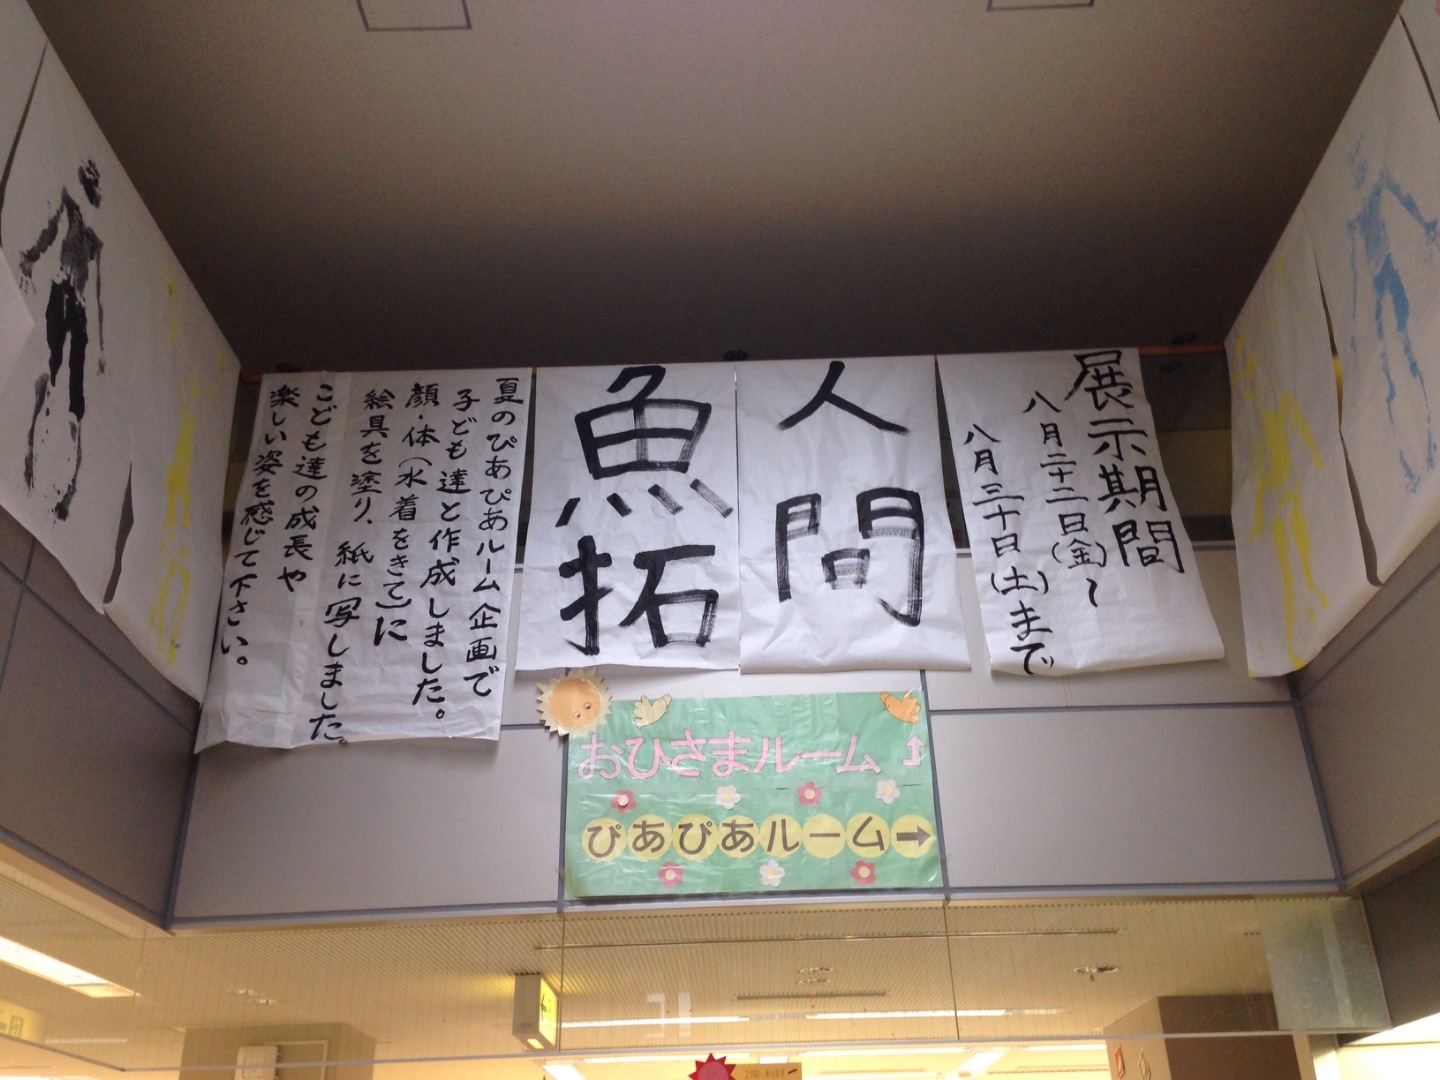 展示期間
八月二十二日(金)〜
八月三十日(土)まで
人間
魚拓
夏のぴあぴあルーム企画で
子ども達と作成しました。
顔・体(水着をきて)に
絵具を塗り、紙に写しました。
こども達の成長や
楽しい姿を感じて下さい。
おひさまルーム↑
ぴあぴあルーム→